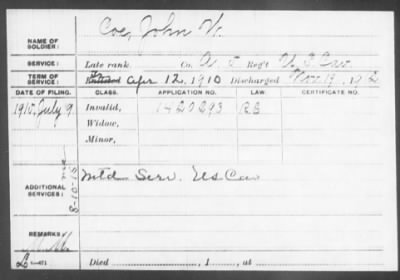 Coe, John W.
NAME OF SOLDIER:
SERVICE: Late rank, Co. Reg't U.S. Cav.
TERM OF SERVICE: Enlisted Apr 12, 1910 Discharged Nov. 19, 
DATE OF FILING. CLASS. APPLICATION NO. LAW. CERTIFICATE NO.
1910, July 9. Invalid, 1420293
Widow,
Minor,
ADDITIONAL SERVICES: Mtd Serv. US Cav
8-10-15
REMARKS:
Died , 1 , at